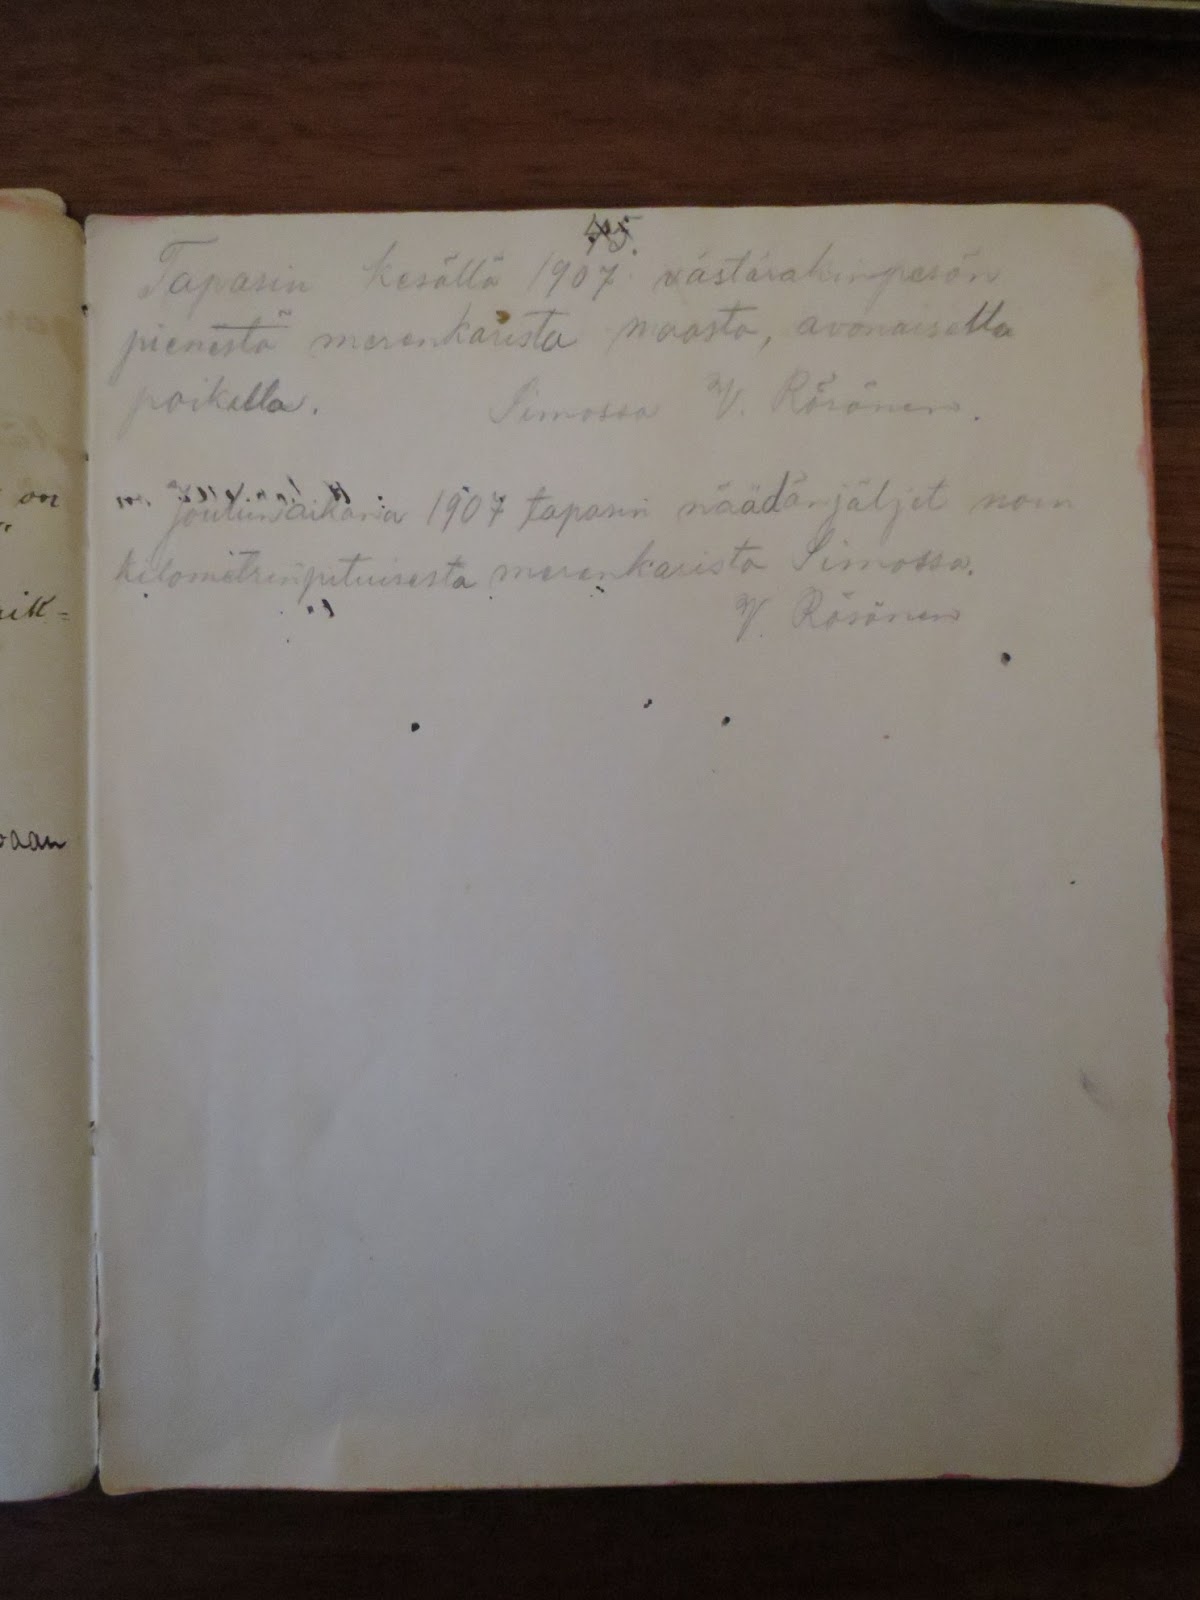 45.
Tapasin kesällä 1907 västäräkinpesän
pienestä merenkarista maasta, avonaisella
paikalla. Simossa V. Räsänen.
Joulun aikana 1907 tapasin näädänjäljet noin
kilometrinpituisesta merenkarista Simossa.
V. Räsänen
on
aik=
vaan